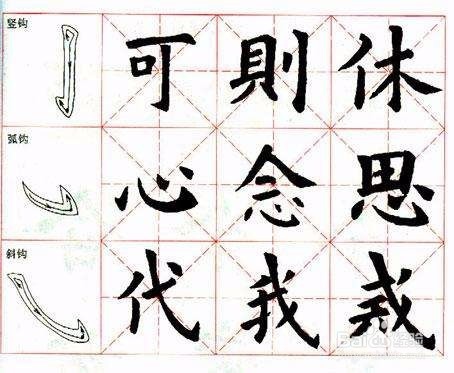 竖钩 可 則 休
弧钩 心 念 思
斜钩 代 我
Baidu 经验